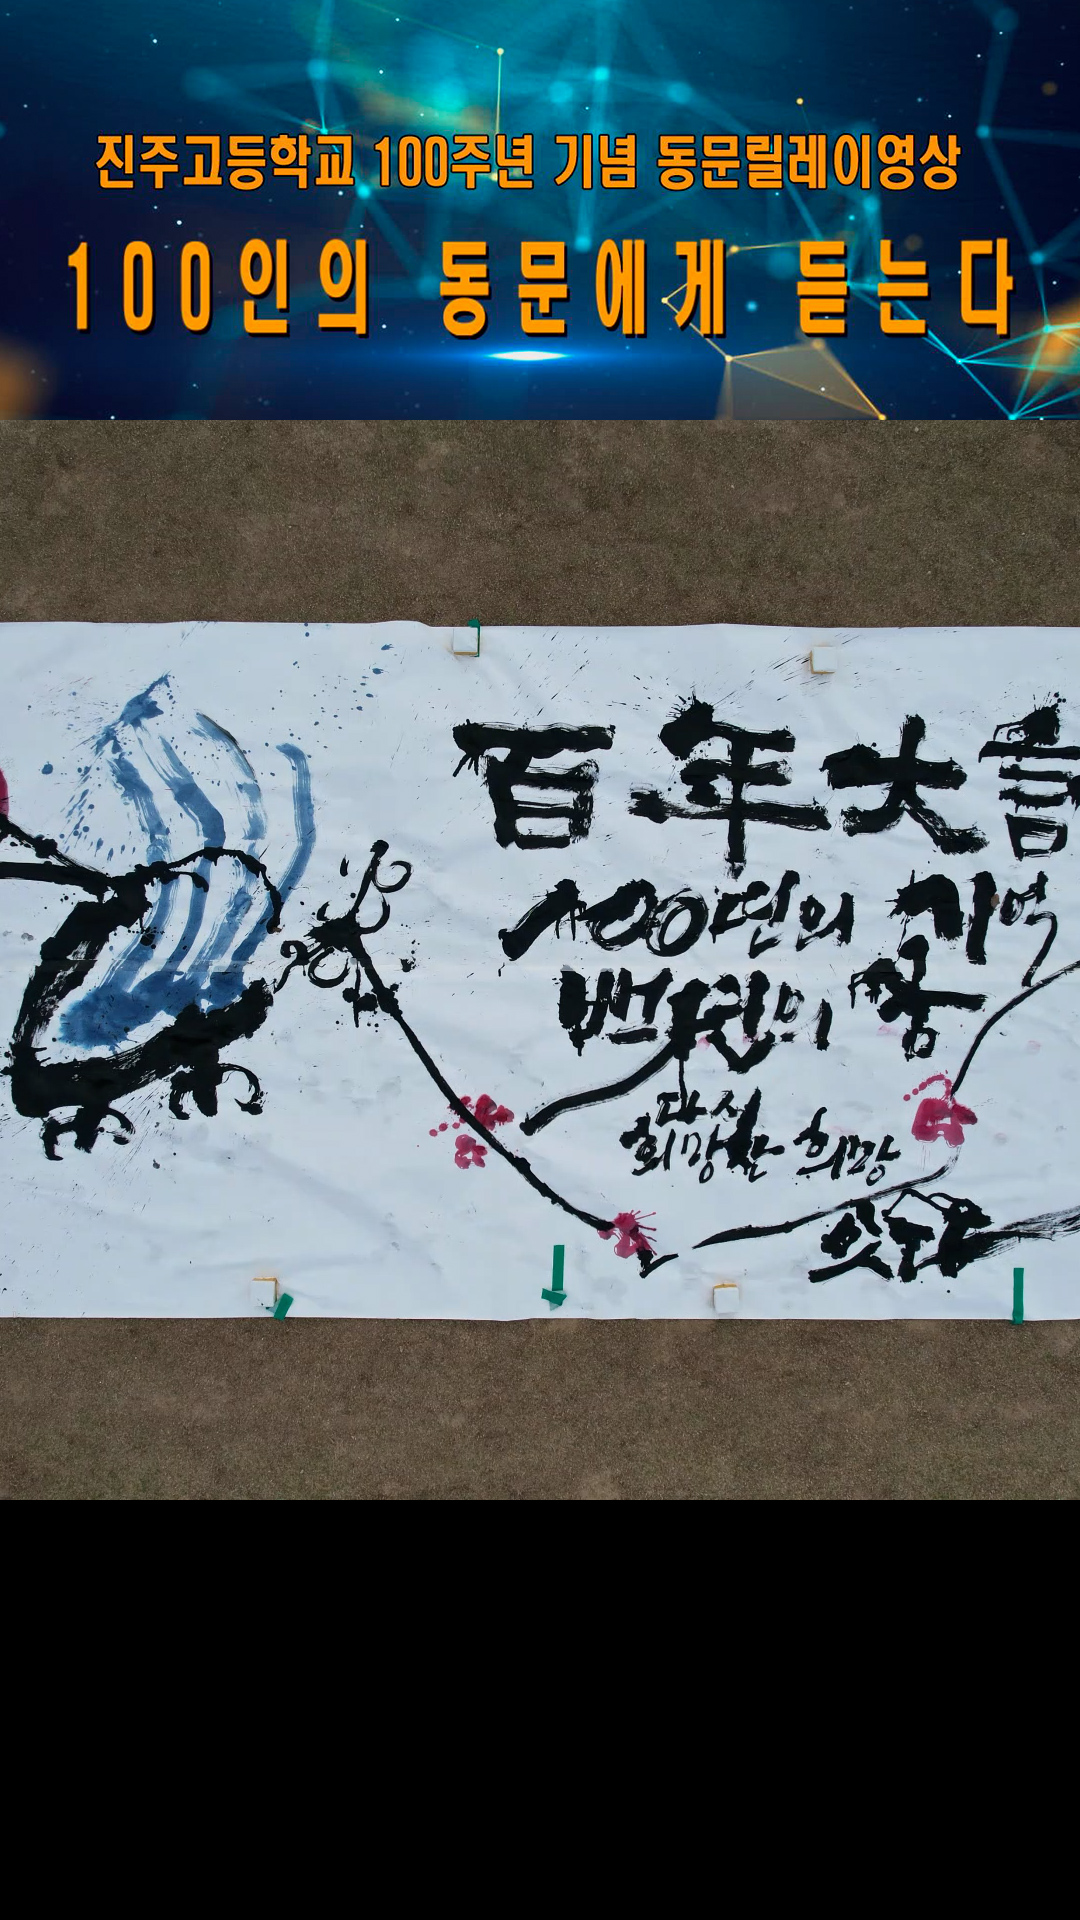 진주고등학교 100주년 기념 동문릴레이영상
100인의 동문에게 듣는다
百年大計
100년의 기억
백년의 꿈
다시
희망찬 희망